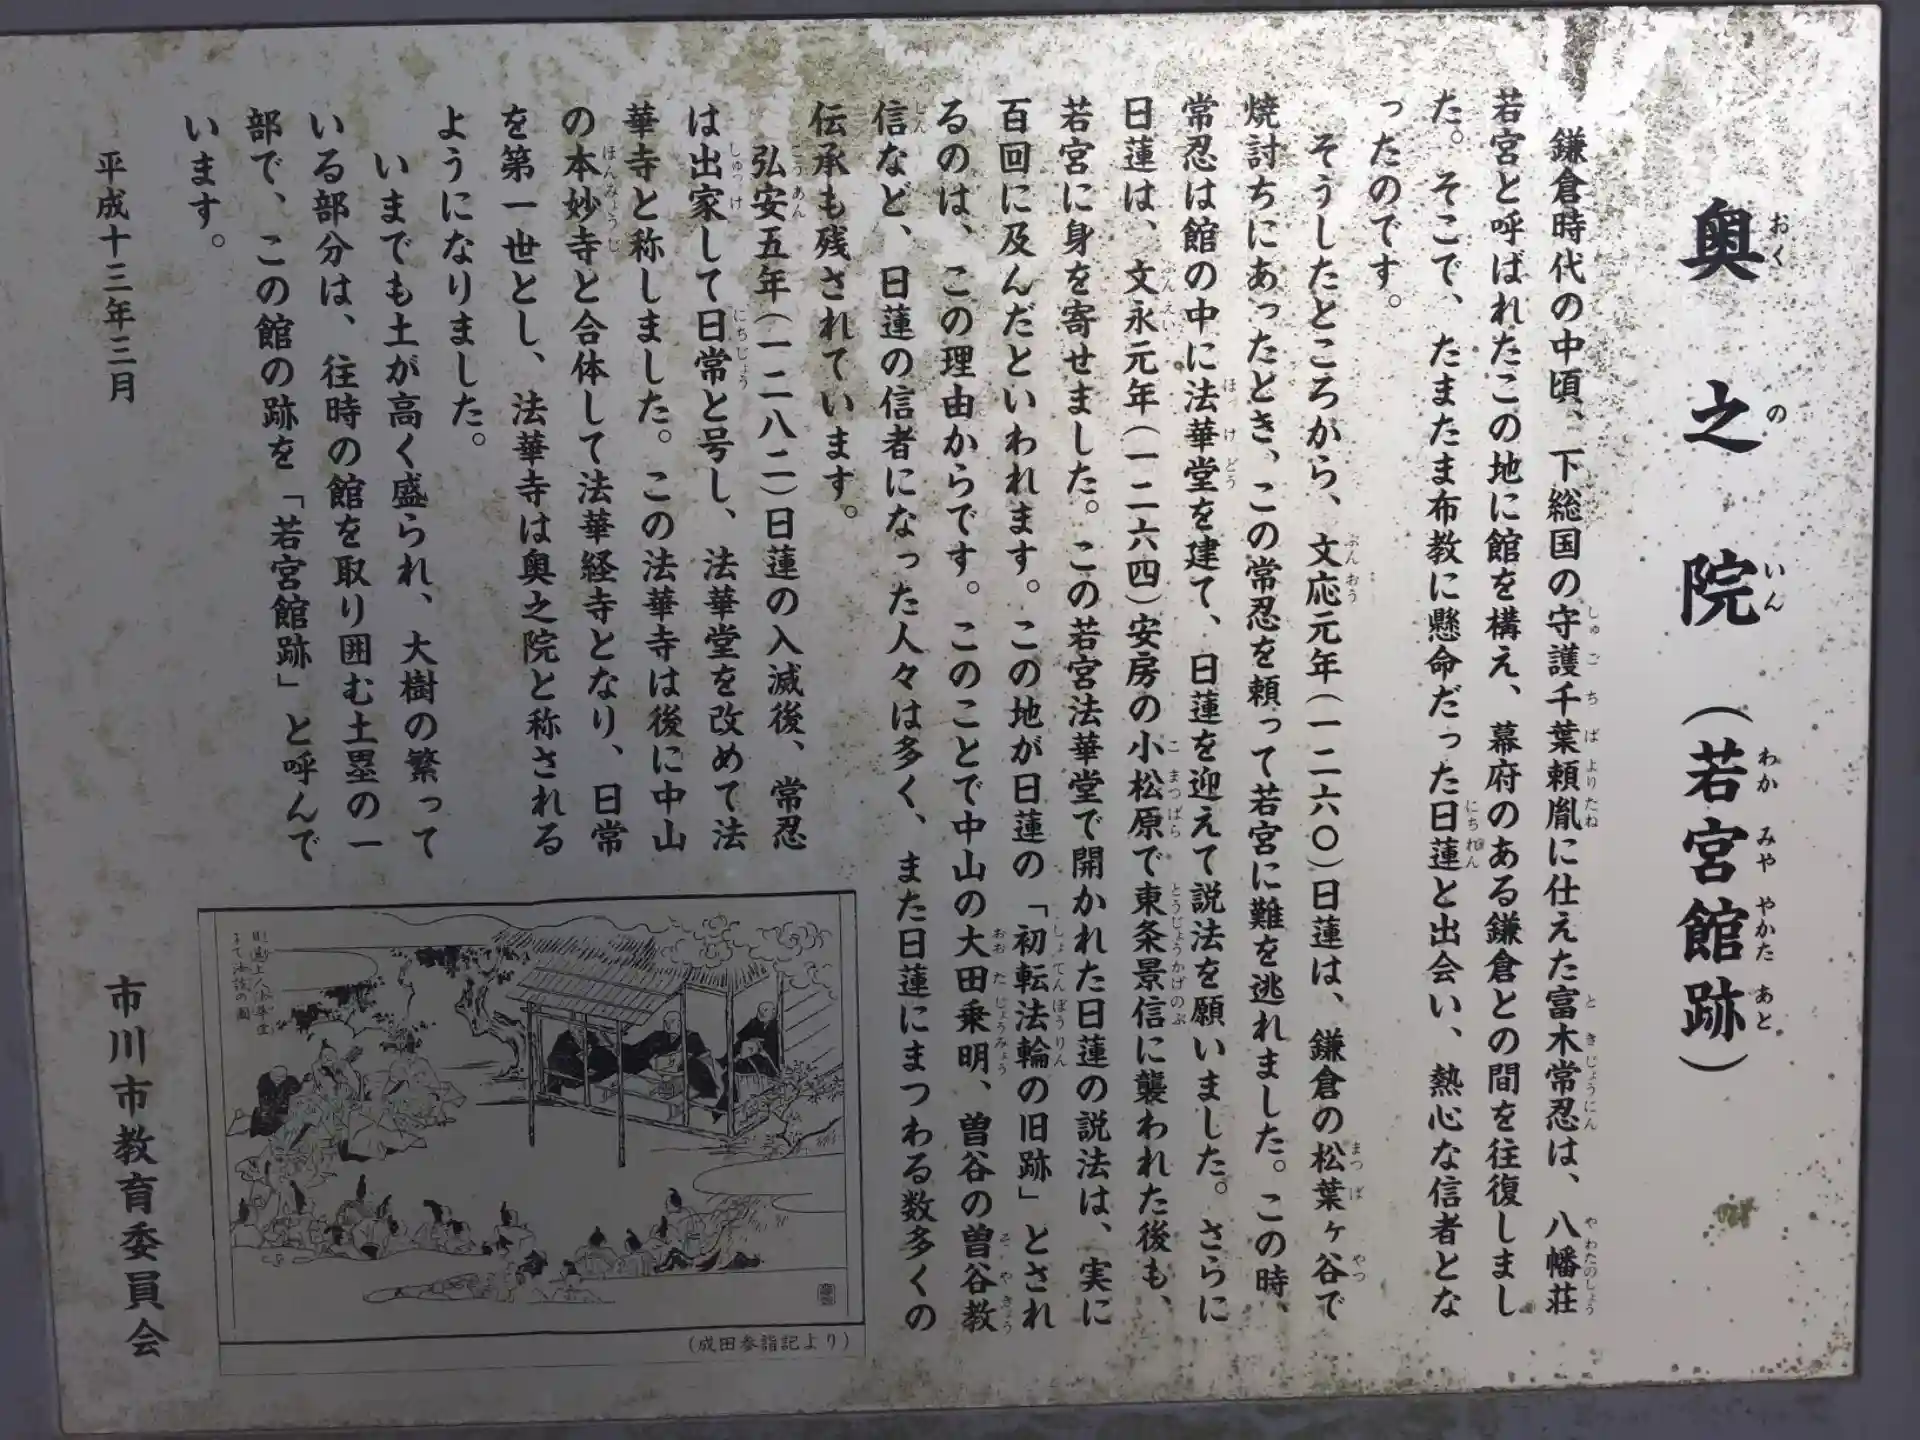 奥之院（若宮館跡）
鎌倉時代の中頃、下総国の守護千葉頼胤に仕えた富木常忍は、八幡荘
若宮と呼ばれたこの地に館を構え、幕府のある鎌倉との間を往復しまし
た。そこで、たまたま布教に懸命だった日蓮と出会い、熱心な信者とな
ったのです。
そうしたところから、文応元年（一二六〇）日蓮は、鎌倉の松葉ヶ谷で
焼討ちにあったとき、この常忍を頼って若宮に難を逃れました。この時、
常忍は館の中に法華堂を建て、日蓮を迎えて説法を願いました。さらに
日蓮は、文永元年（一二六四）安房の小松原で東条景信に襲われた後も、
若宮に身を寄せました。この若宮法華堂で開かれた日蓮の説法は、実に
百回に及んだといわれます。この地が日蓮の「初転法輪の旧跡」とされ
るのは、この理由からです。このことで中山の大田乗明、曽谷の曽谷教
信など、日蓮の信者になった人々は多く、また日蓮にまつわる数多くの
伝承も残されています。
弘安五年（一二八二）日蓮の入滅後、常忍
は出家して日常と号し、法華堂を改めて法
華寺と称しました。この法華寺は後に中山
の本妙寺と合体して法華経寺となり、日常
を第一世とし、法華寺は奥之院と称される
ようになりました。
いまでも土が高く盛られ、大樹の繁って
いる部分は、往時の館を取り囲む土塁の一
部で、この館の跡を「若宮館跡」と呼んで
います。
平成十三年三月
市川市教育委員会
（成田参詣記より）